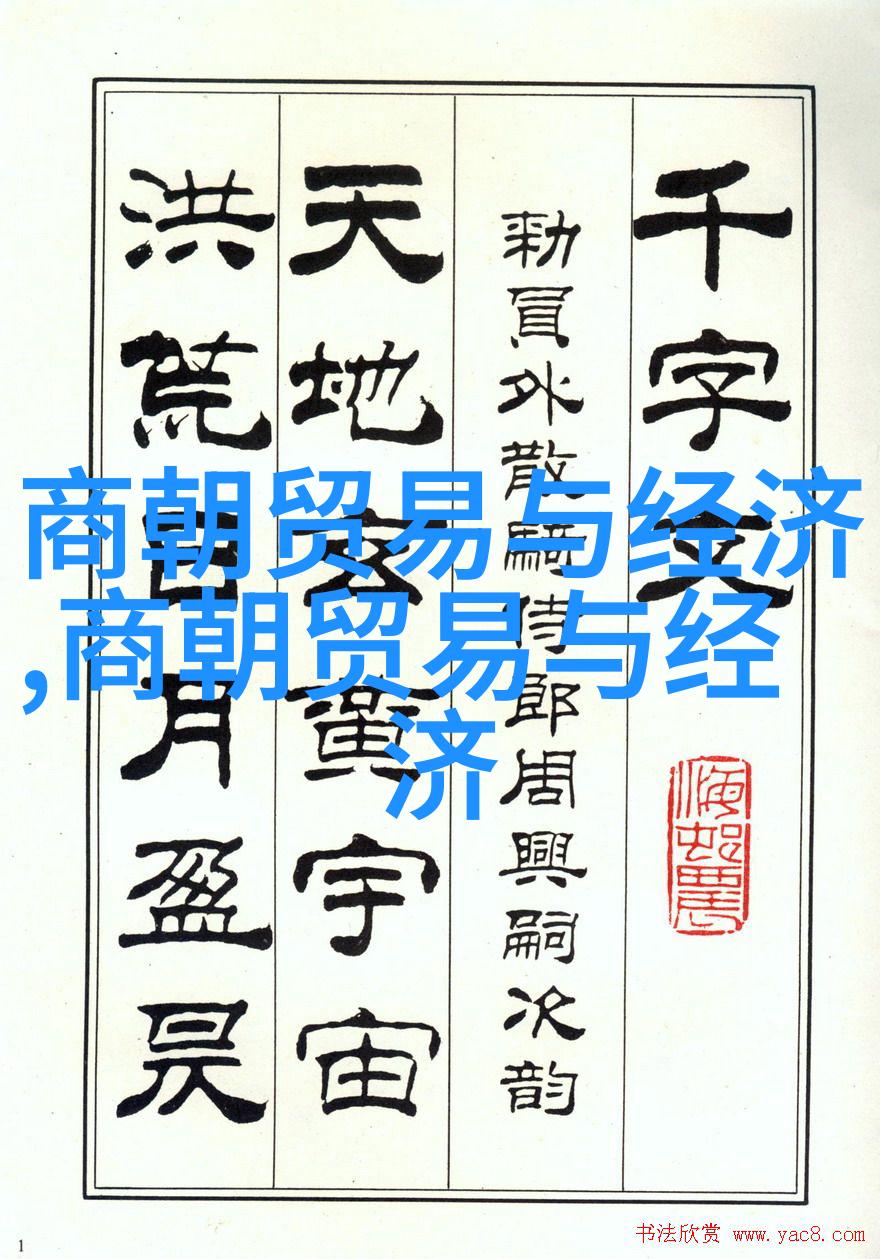 千字文
勑員外散騎侍郎周興嗣次韵
天地玄黃宇宙
洪荒日月盈昃
商朝贸易与经济
,商朝贸易与经
济
1
书法欣赏 www.yac8.com